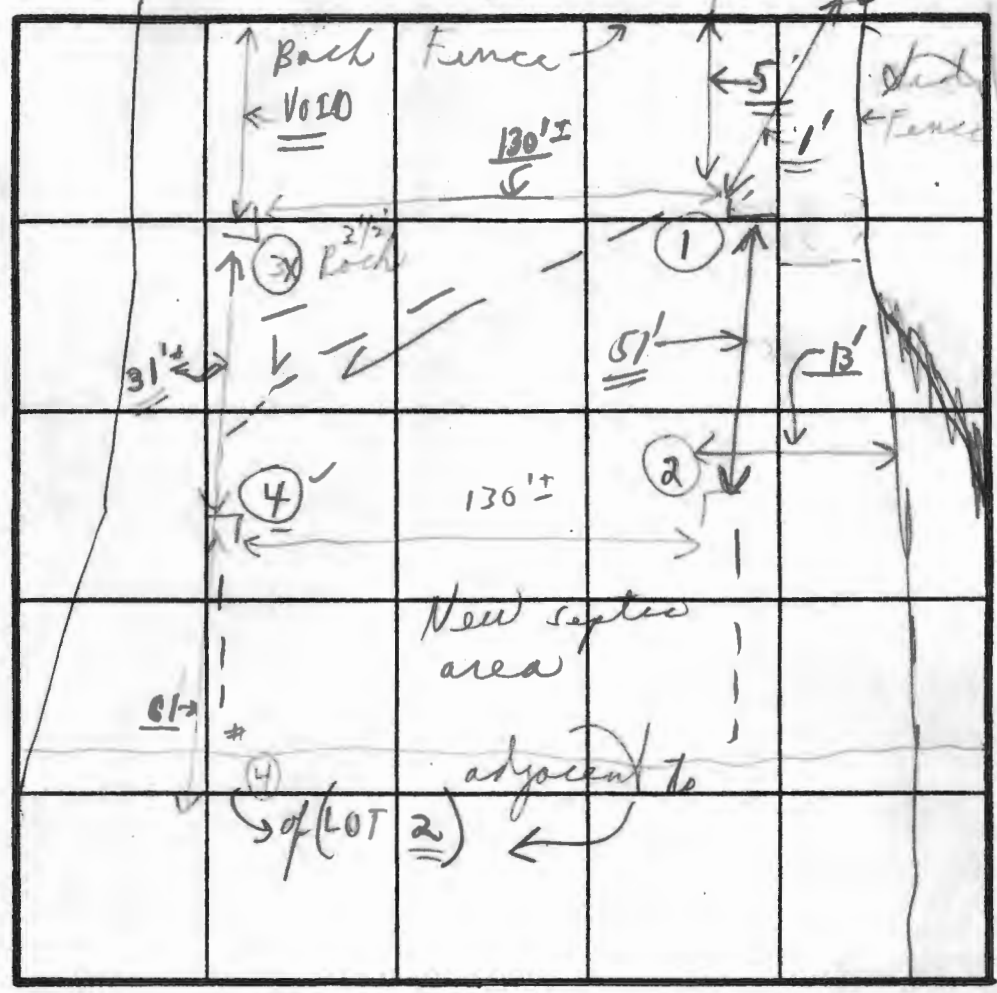 Back Fence
VOID
5'
Side
Fence
1'
130'±
2 1/2'
3X Rock
1
31'±
51'
13'
4
2
130'±
New septic
area
61
*
4
adjacent to
of (LOT 2)